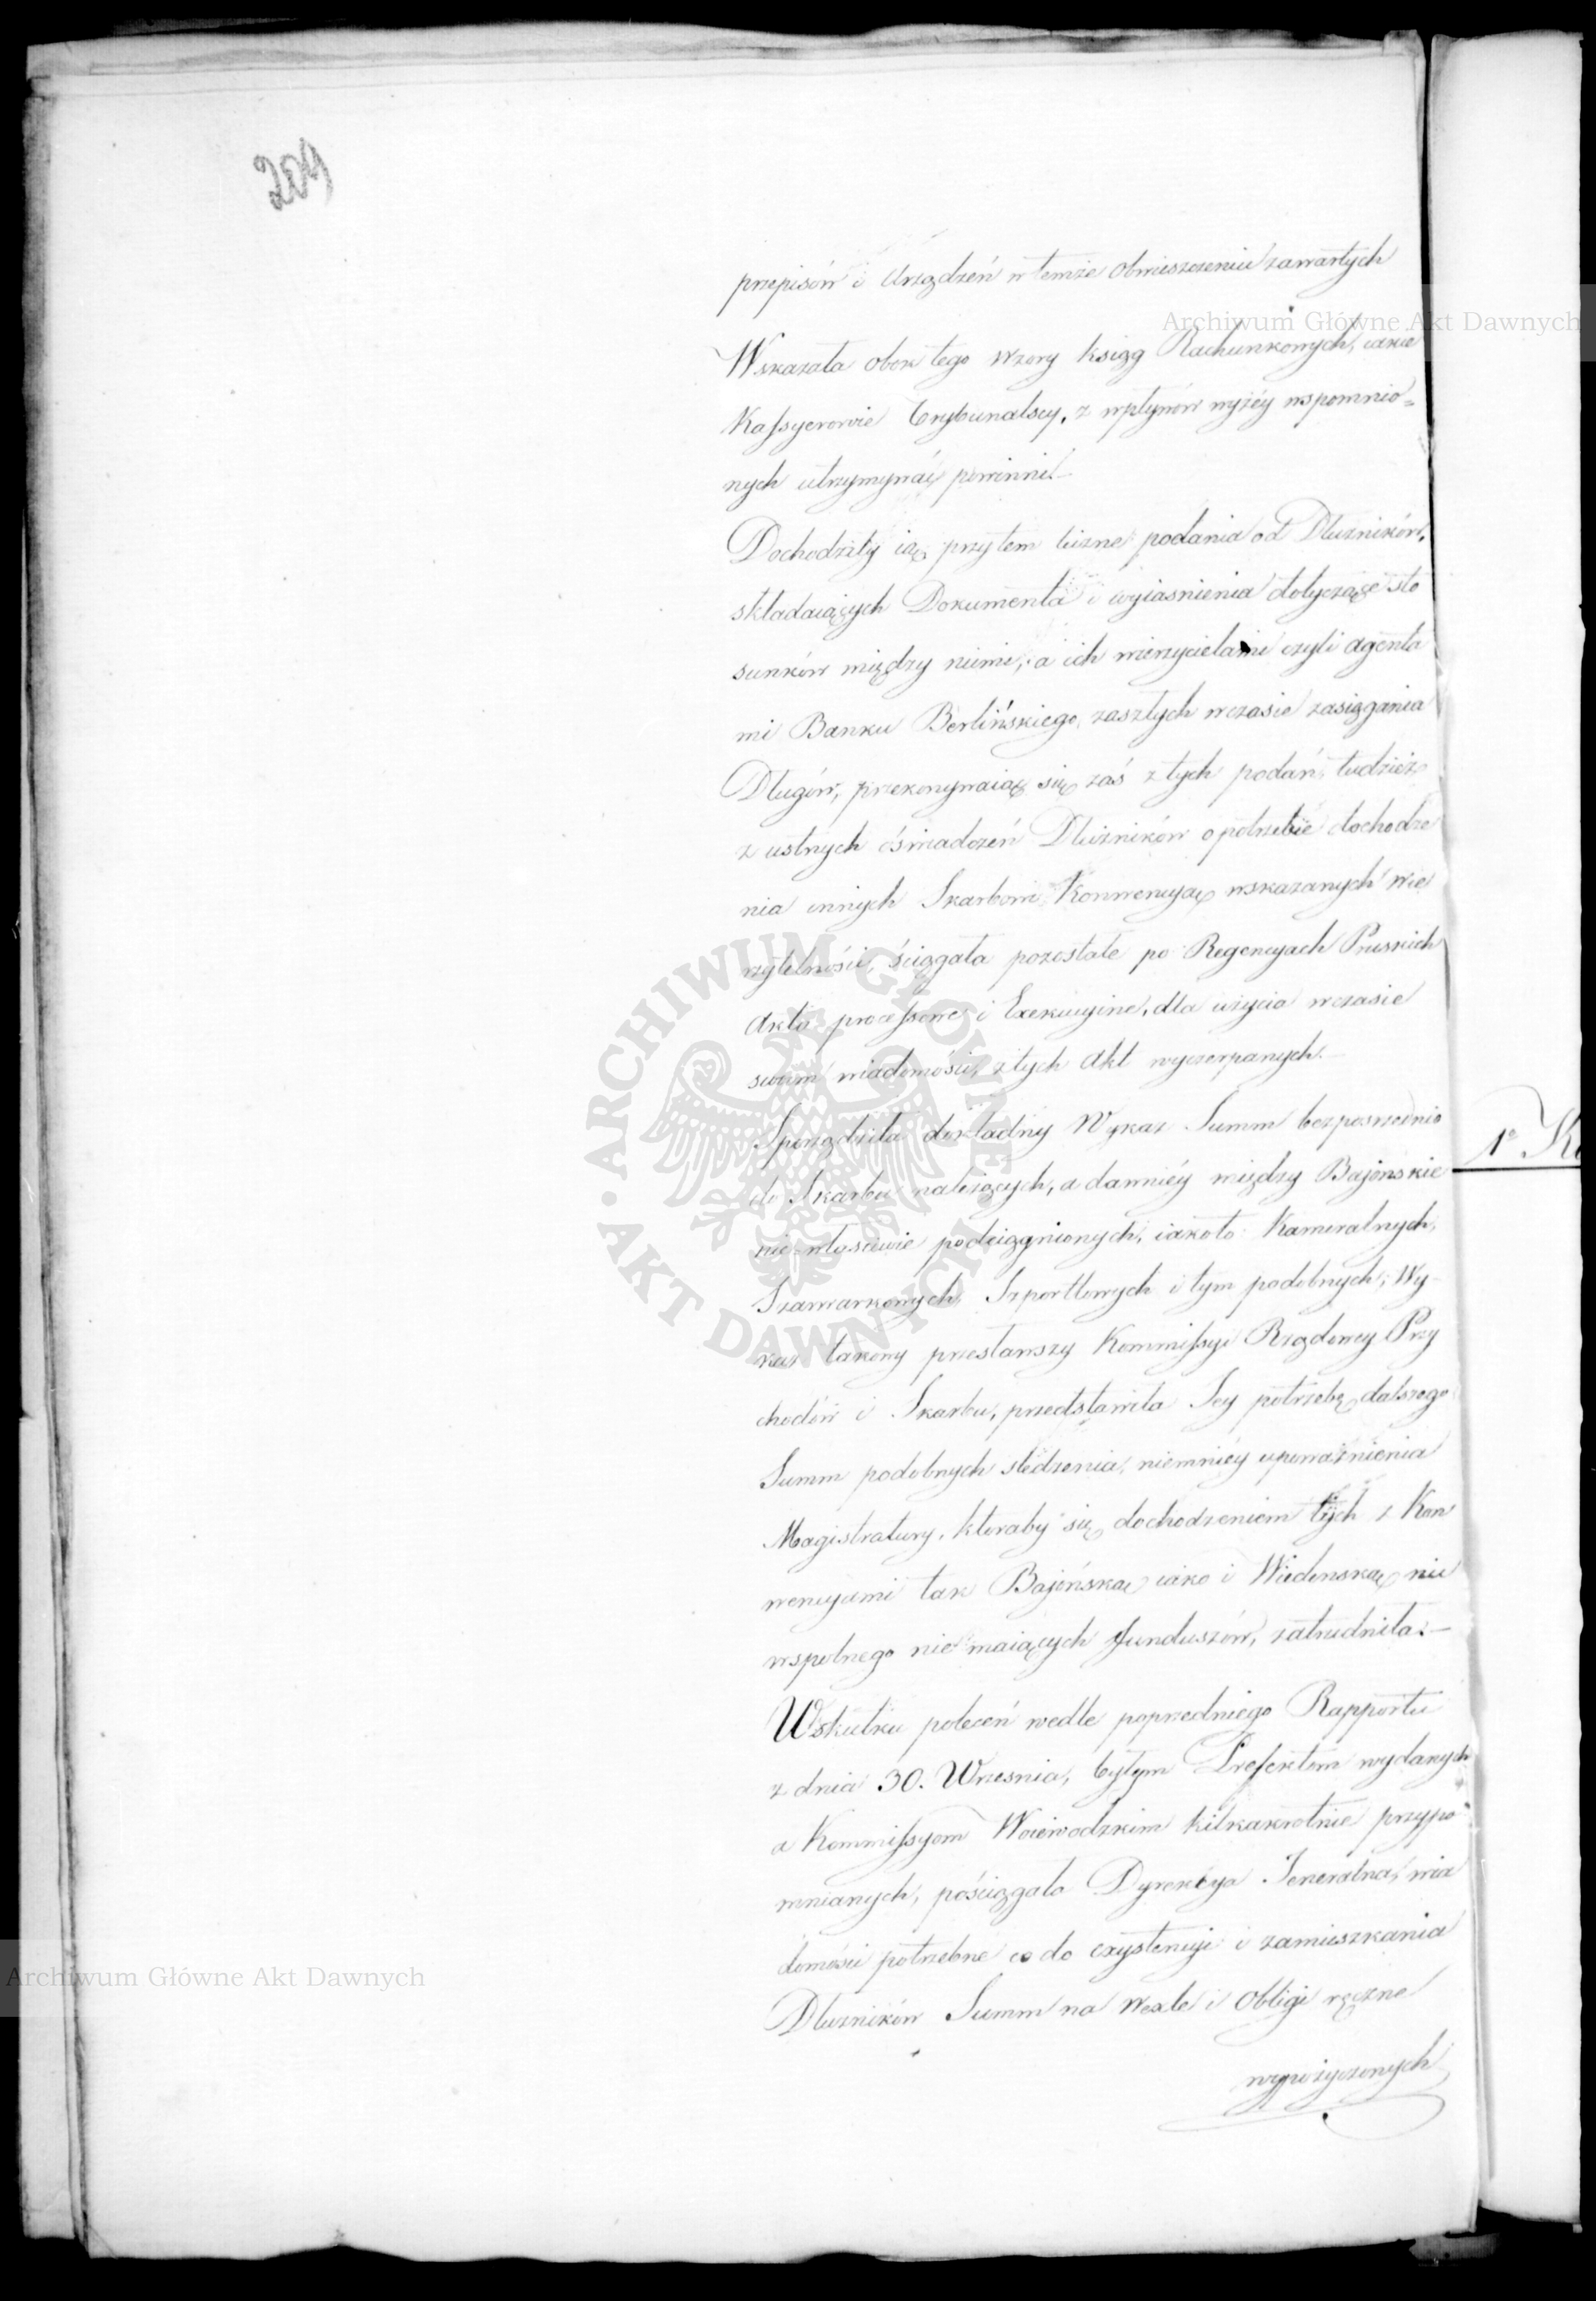 204
przepisów i Urządzeń w temże Obwieszczeniu zawartych
Archiwum Główne Akt Dawnych
Wskazała obok tego wzory ksiąg Rachunkowych, iakie
Kassyerowie Trybunalscy, z wpływów wyżéy wspomnio=
nych utrzymywać powinni.—
Dochodziły ią przytem liczne podania od Dłużników,
składaiących Dokumenta i wyiasnienia dotyczące sto
sunków między niemi, a ich wierzycielami czyli Agenta
mi Banku Berlińskiego, zaszłych wczasie zasiągania
Długów, przekonywaiąc się zaś z tych podań, tudzież
z ustnych oświadczeń Dłużników o potrzebie dochodze
nia innych Skarbowi Konwencyą wskazanych wie
rzytelności, ściągała pozostałe po Regencyach Pruskich
Akta processowe i Exekucyine, dla użycia wczasie
swoim wiadomości, z tych Akt wyczerpanych.—
Sporządziła dokładny Wykaz Summ bezposrzednio
do Skarbu należących, a dawniéy między Bajońskie
nie-własciwie podciągnionych, iakoto: Kameralnych,
Szarwarkowych, Szportlowych i tym podobnych; Wy-
kaz takowy przesławszy Kommissyi Rządowey Przy
chodów i Skarbu, przedstawiła Jey potrzebę dalszego
Summ podobnych sledzenia, niemniéy upoważnienia
Magistratury, któraby się dochodzeniem tych z Kon
wencyami tak Bajońską iako i Wiedenską nic
wspolnego nie maiących funduszów, zatrudniła.—
Wskutku poleceń wedle poprzedniego Rapportu
z dnia 30. Wrzesnia, byłym Prefektom wydanych
a Kommissyom Woiewodzkim kilkakrotnie przypo
mnianych, pościągała Dyrekcya Jeneralna, wia
domości potrzebne co do exystencyi i zamieszkania
Dłużników Summ na Wexle i Obligi ręczne
wypożyczonych
1º Ko
ARCHIWUM GŁÓWNE AKT DAWNYCH
Archiwum Główne Akt Dawnych